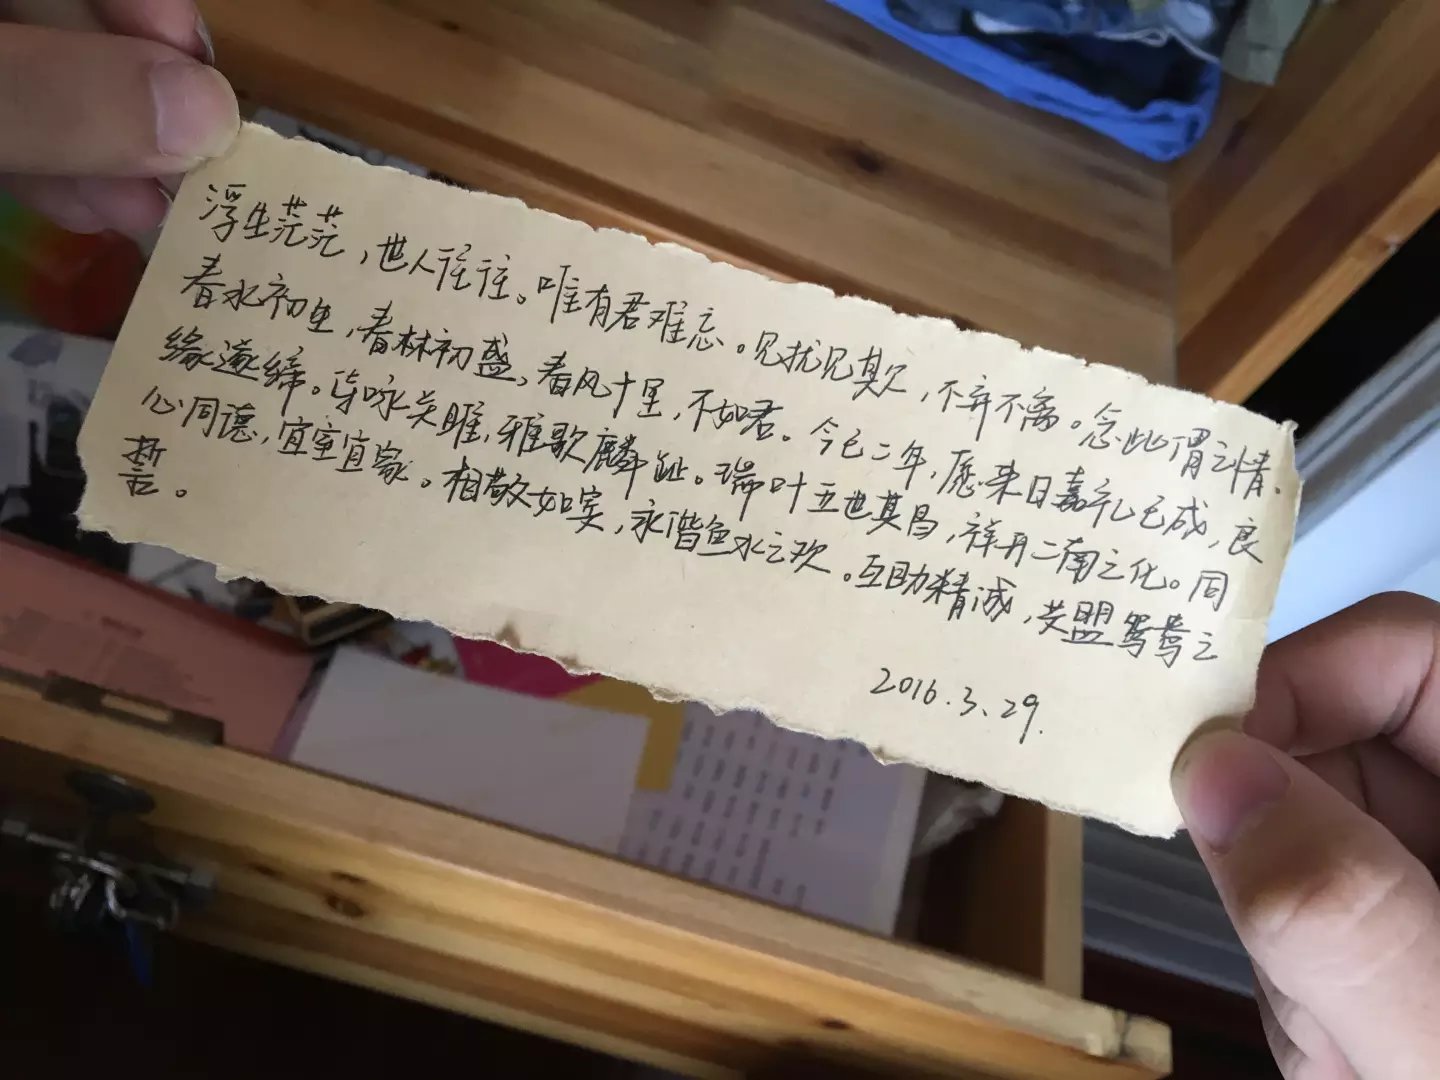 浮生茫茫，世人往往。唯有君难忘。见扰见欺，不弃不离。念此谓之情。
春水初生，春林初盛，春风十里，不如君。今已二年，愿来日嘉礼已成，良
缘遂缔。诗咏关雎，雅歌麟趾。瑞叶五世其昌，祥开二南之化。同
心同德，宜室宜家。相敬如宾，永谐鱼水之欢。互助精诚，共盟鸳鸯之
誓。
2016.3.29.